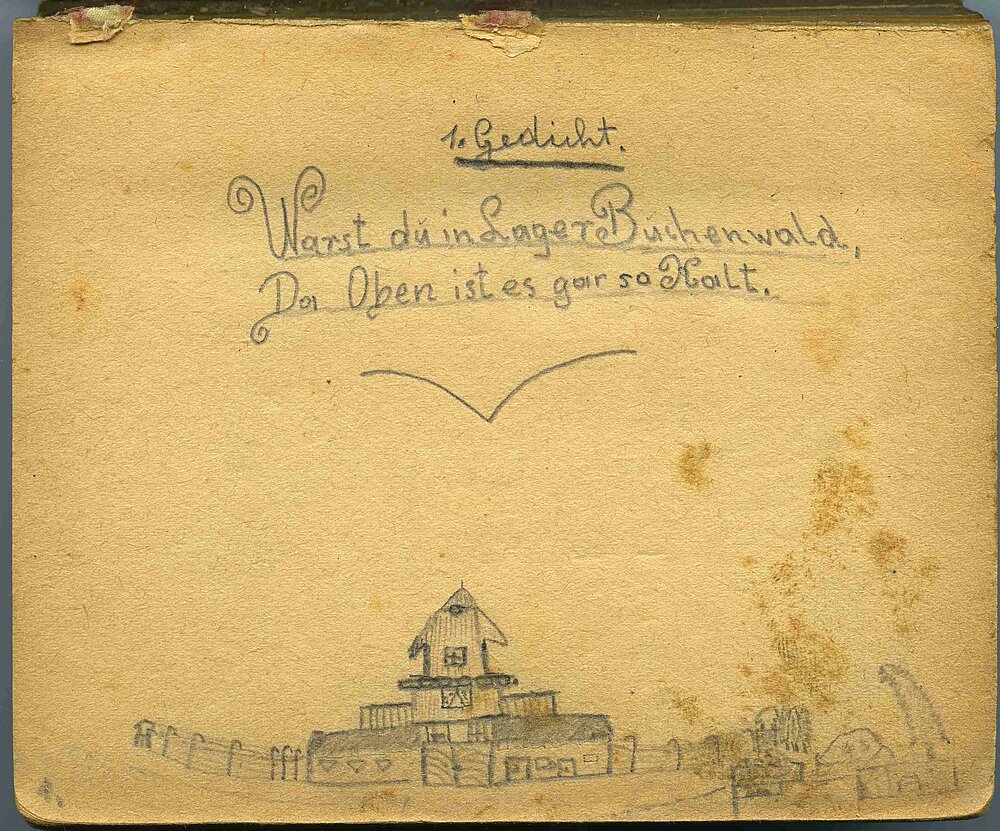 1. Gedicht.
Warst du in Lager Buchenwald,
Da Oben ist es gar so Kalt.